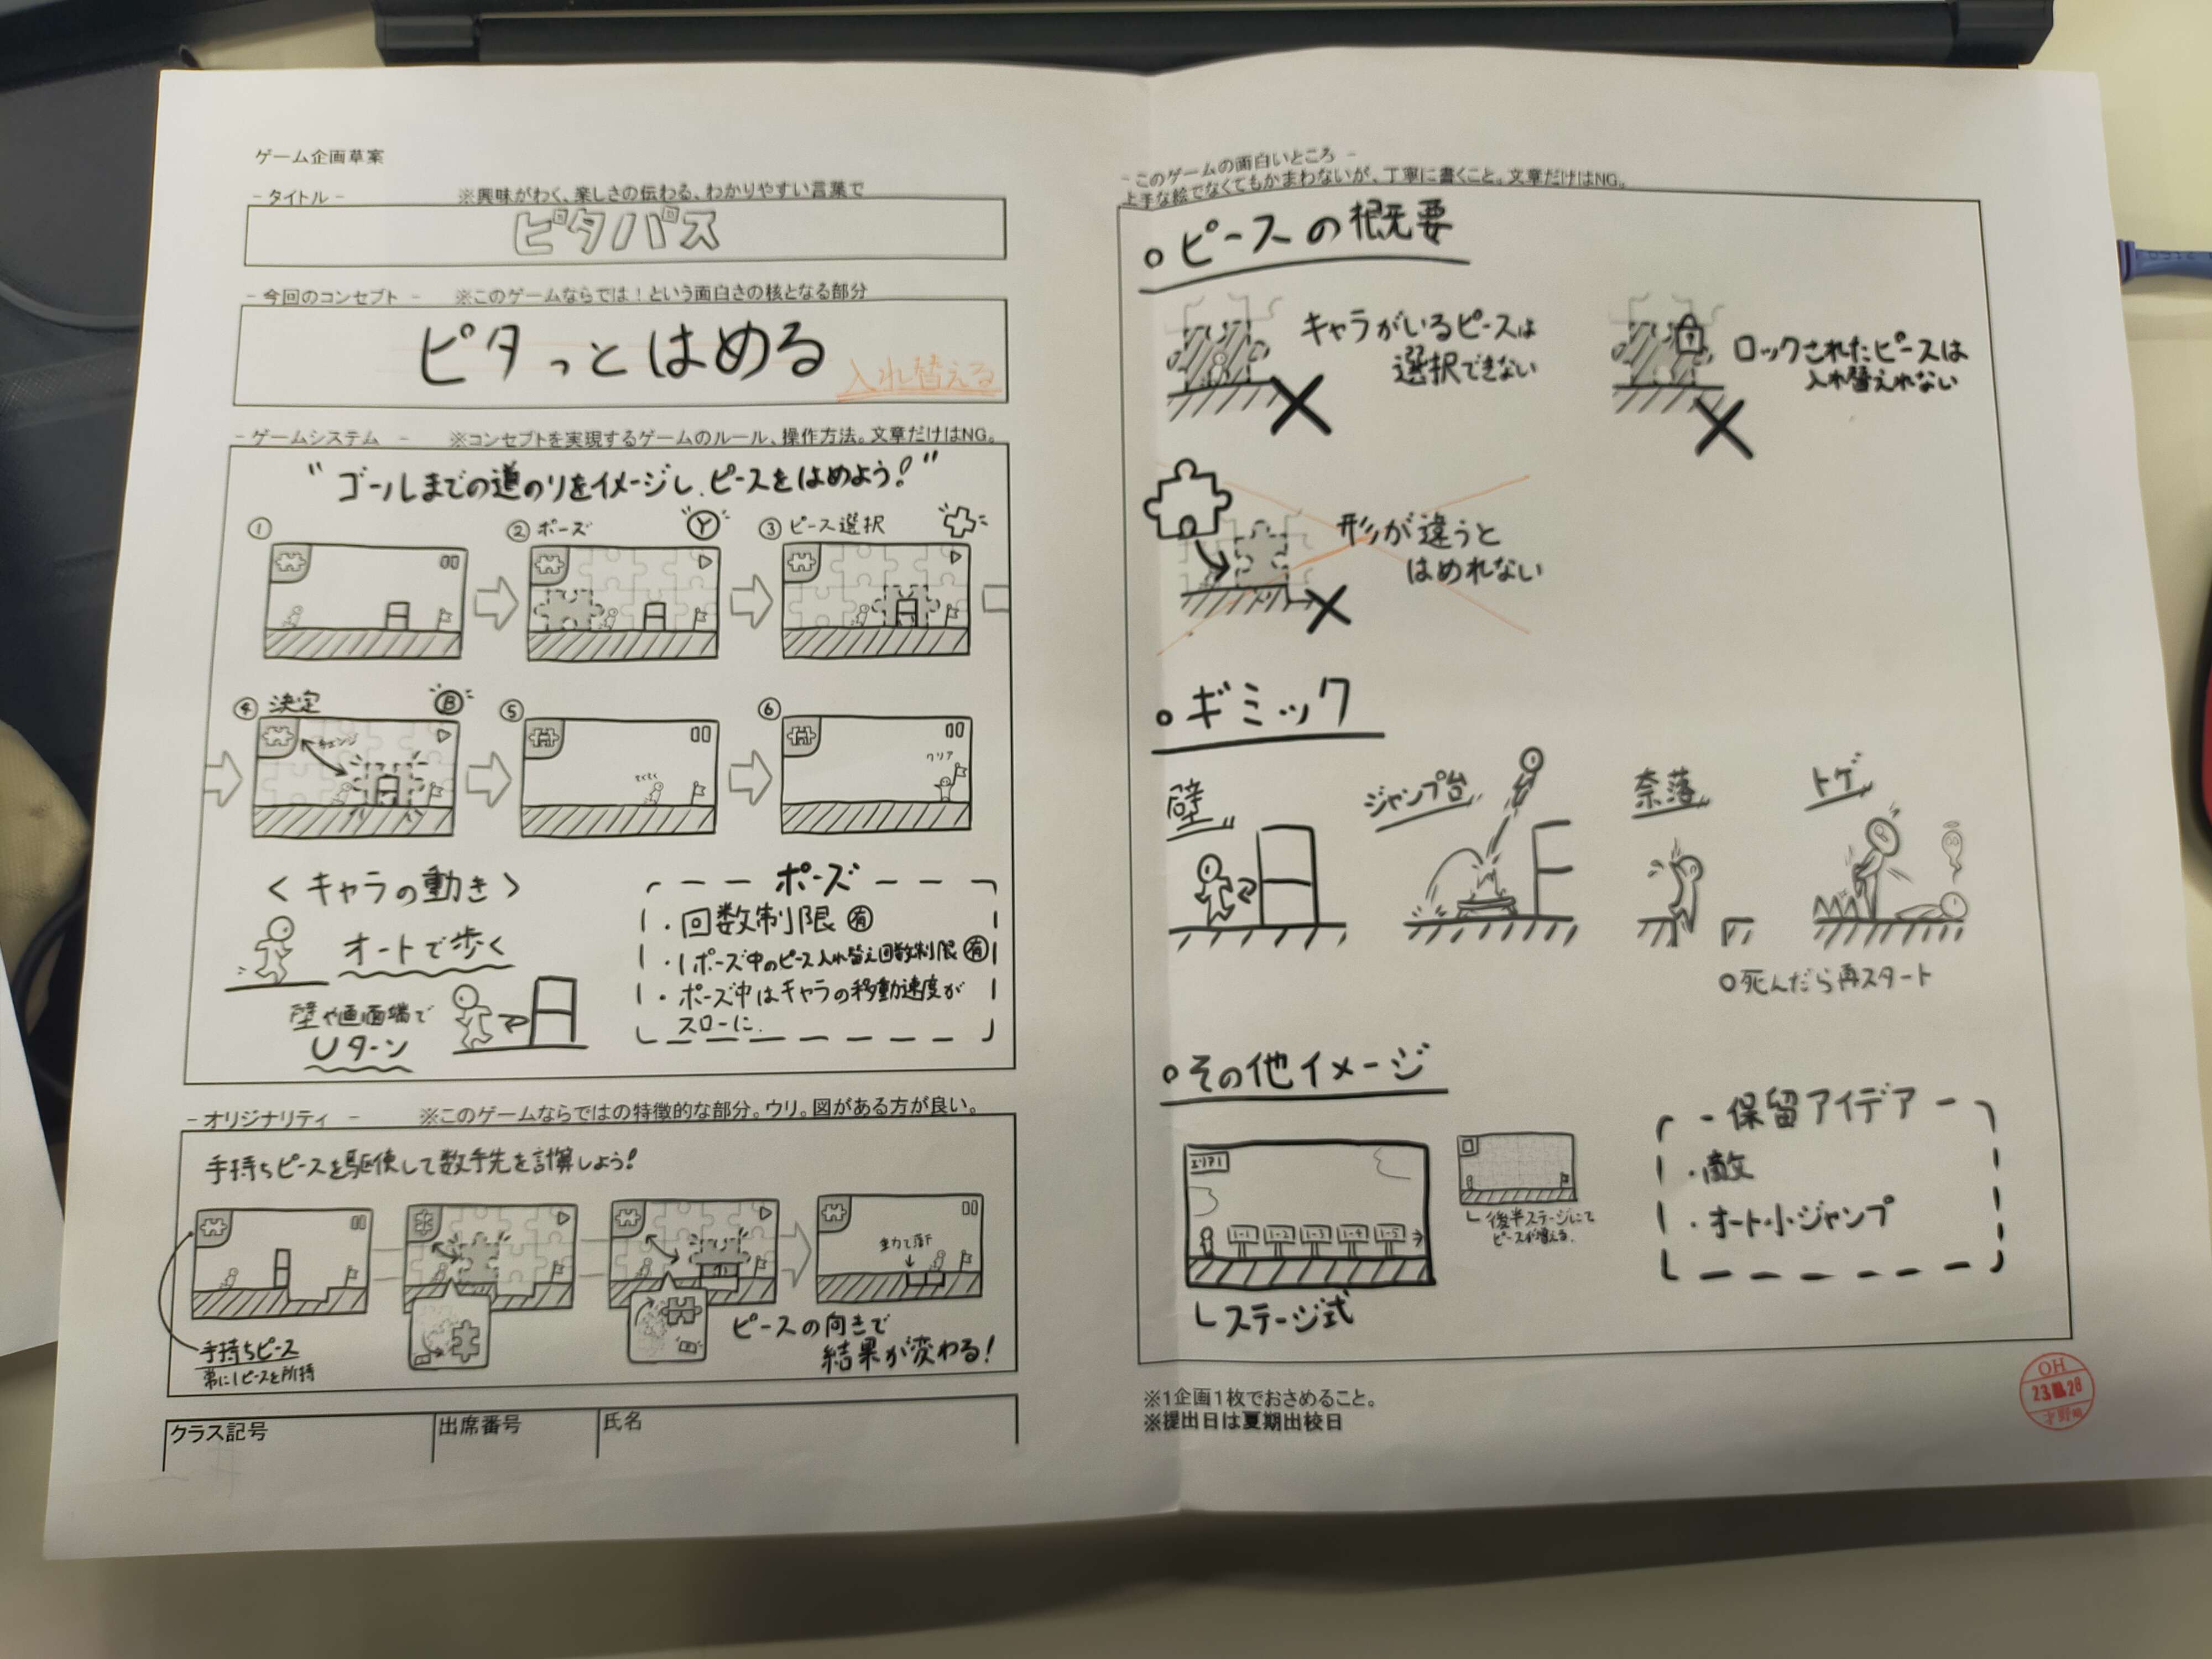 ゲーム企画草案
- タイトル -　※興味がわく、楽しさの伝わる、わかりやすい言葉で
ピタパズ
- 今回のコンセプト -　※このゲームならでは！という面白さの核となる部分
ピタっとはめる
入れ替える
- ゲームシステム -　※コンセプトを実現するゲームのルール、操作方法。文章だけはNG。
"ゴールまでの道のりをイメージし、ピースをはめよう！"
①
② ポーズ Ⓨ
③ ピース選択
④ 決定 Ⓑ
チェンジ
⑤
てくてく
⑥
クリア
＜キャラの動き＞
オートで歩く
壁や画面端で
Uターン
ポーズ
・回数制限 ㊒
・1ポーズ中のピース入れ替え回数制限 ㊒
・ポーズ中はキャラの移動速度が
スローに.
- オリジナリティ -　※このゲームならではの特徴的な部分。ウリ。図がある方が良い。
手持ちピースを駆使して数手先を計算しよう！
重力で落下
手持ちピース
常に1ピースを所持
ピースの向きで
結果が変わる！
クラス記号
出席番号
氏名
- このゲームの面白いところ -
上手な絵でなくてもかまわないが、丁寧に書くこと。文章だけはNG。
○ピースの概要
キャラがいるピースは
選択できない
ロックされたピースは
入れ替えれない
形が違うと
はめれない
○ギミック
壁
ジャンプ台
奈落
トゲ
○死んだら再スタート
○その他イメージ
エリア1
1-1 1-2 1-3 1-4 1-5
ステージ式
後半ステージにて
ピースが増える.
- 保留アイデア -
・敵
・オート小ジャンプ
※1企画1枚でおさめること。
※提出日は夏期出校日
OH